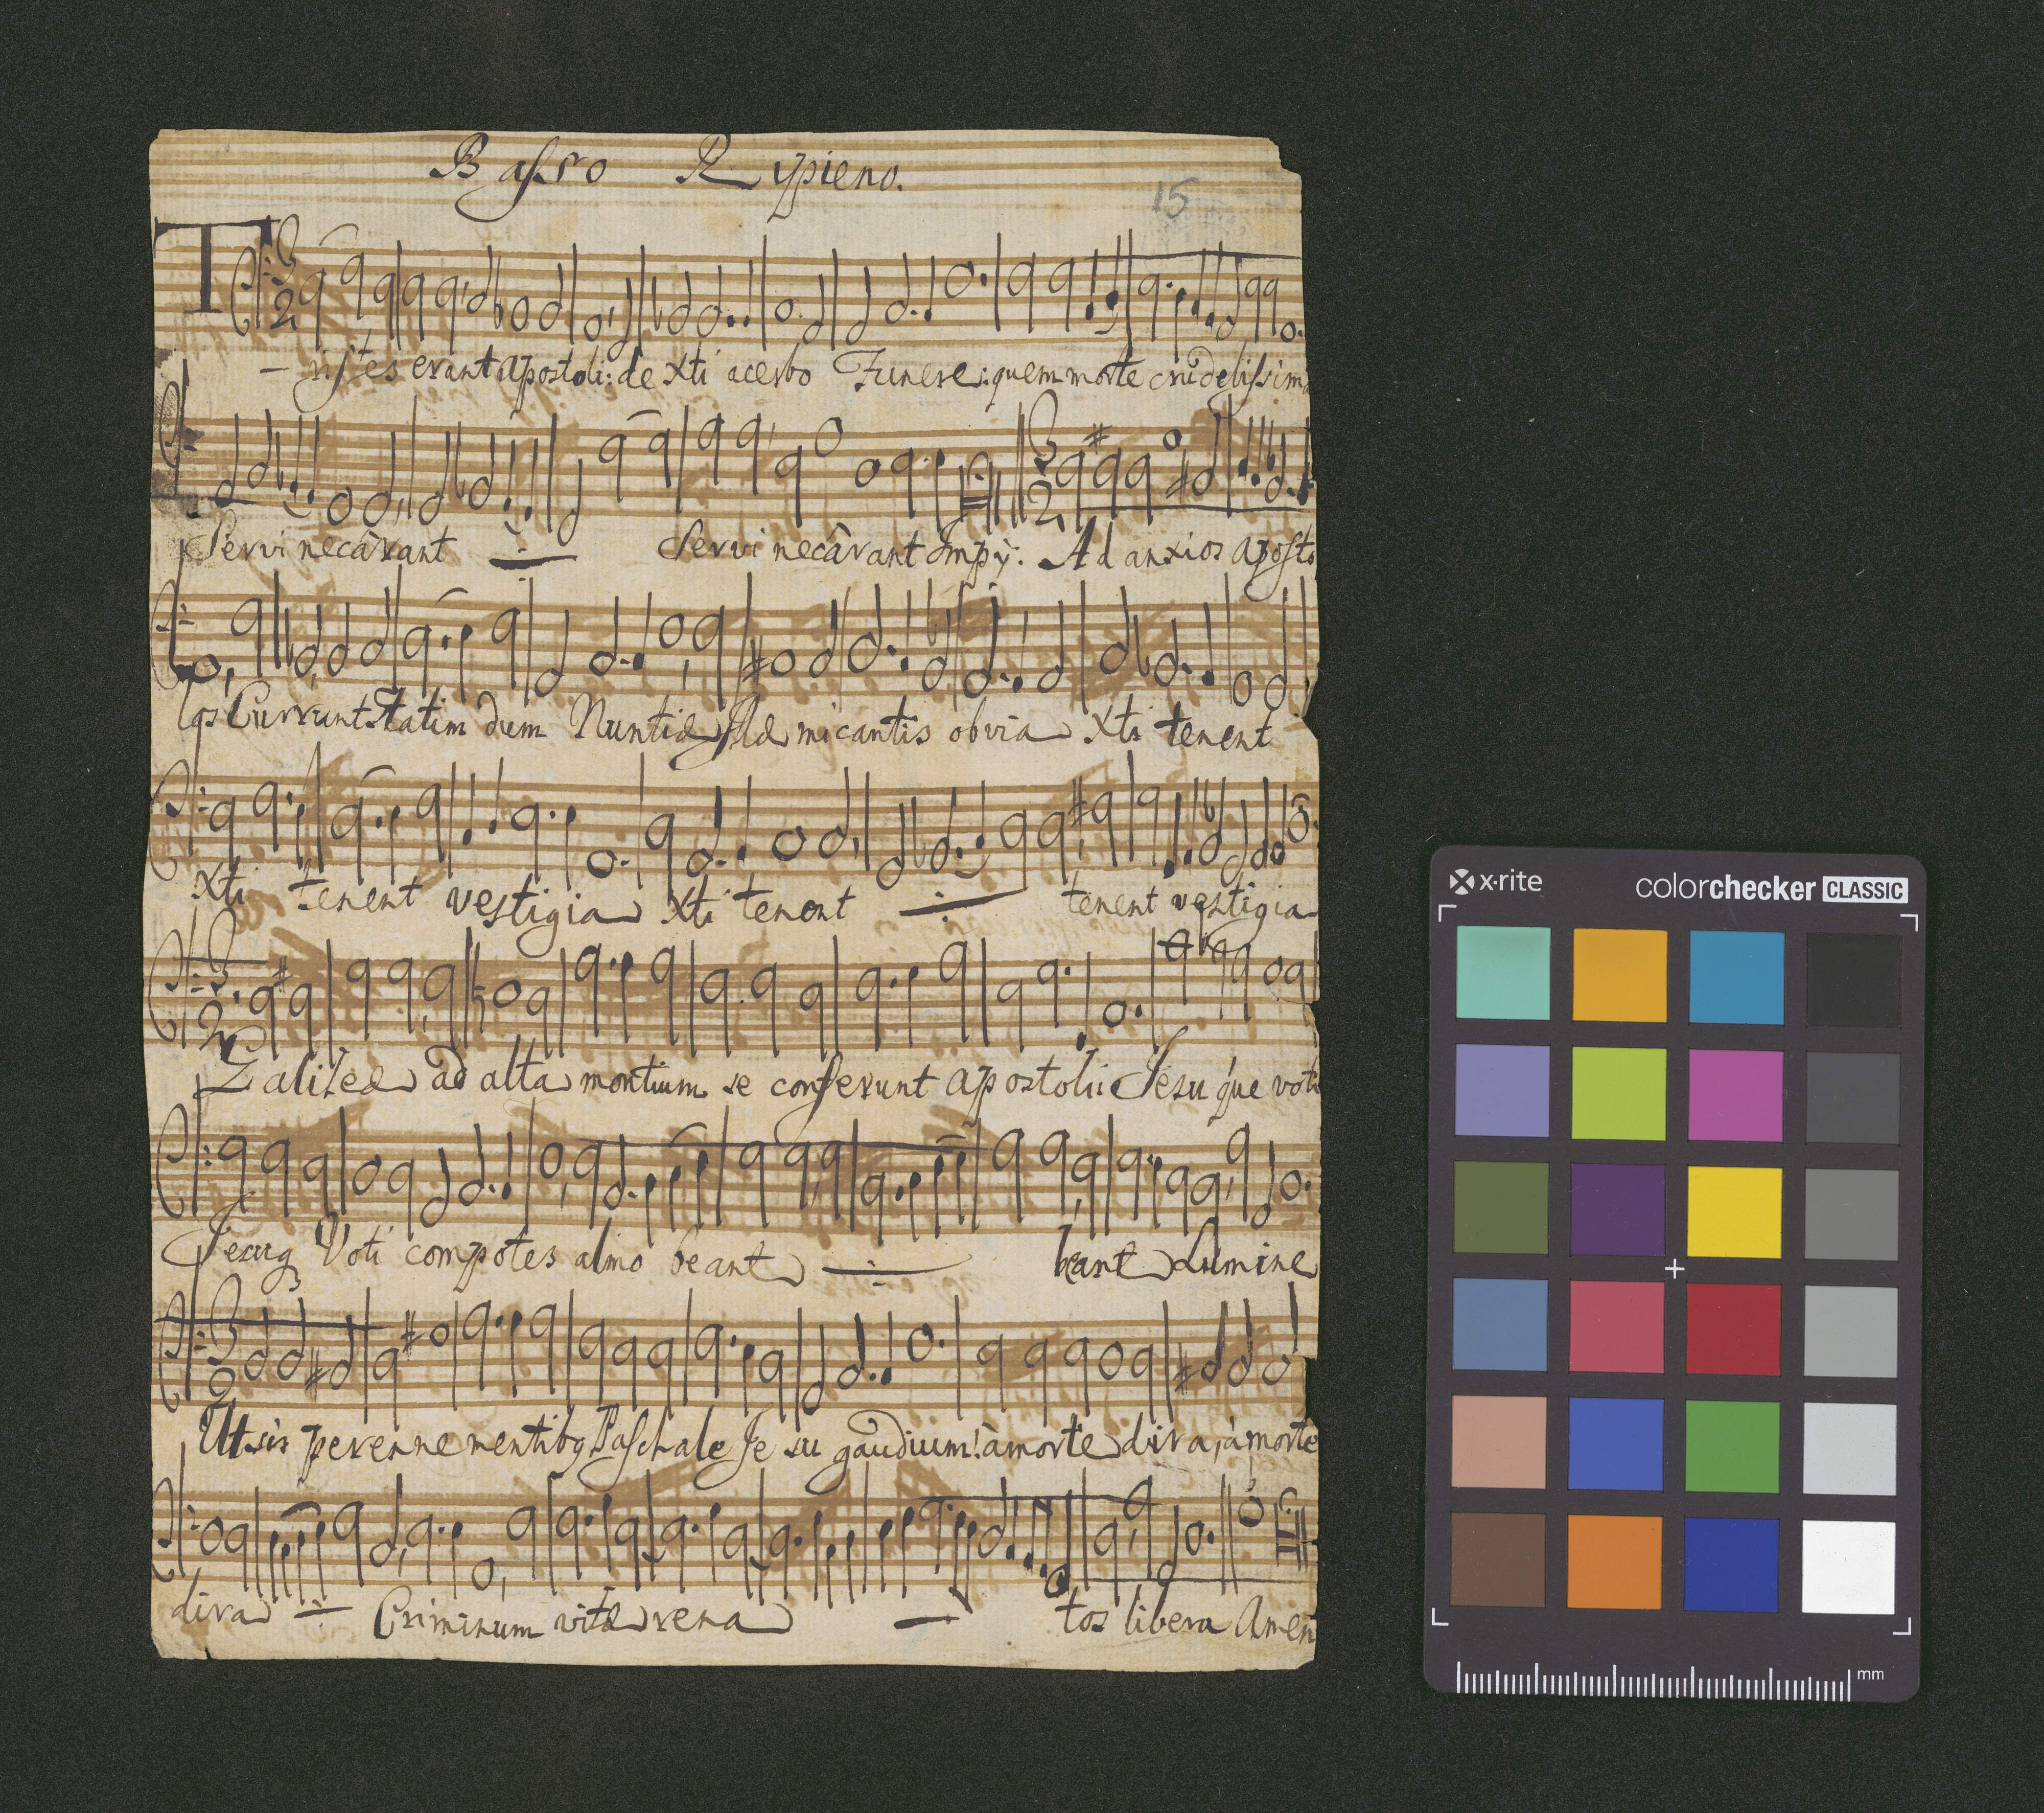 Basso Rypieno.
15
Tristes erant apostoli: de Xti acerbo Funere: quem morte crudelissima
Servi necârant Servi necârant Impÿ: Ad anxios aposto
los Currunt Statim dum Nuntiæ Illæ micantis obvia Xti tenent
Xti tenent vestigia Xti tenent tenent vestigia
Galileæ ad alta montium se conferunt apostoli: Jesu que voti
Jesuq voti compotes almo beant beant Lumine
Ut sis perenne mentibq Paschale Jesu gaudium: à morte dira, à morte
dira Criminum vitæ rena tos libera Amen
x-rite
colorchecker CLASSIC
mm